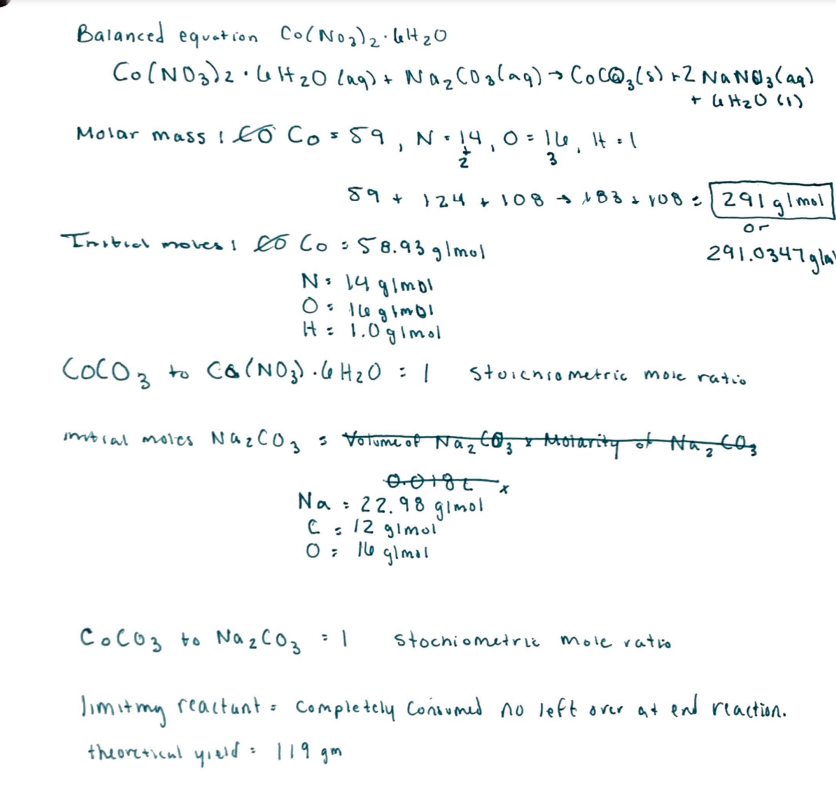 Balanced equation Co(NO3)2·6H2O
Co(NO3)2·6H2O (aq) + Na2CO3(aq) → CoCO3(s) + 2 NaNO3(aq)
+ 6H2O (l)
Molar mass : CO Co = 59, N = 14, O = 16, H = 1
2 3
59 + 124 + 108 → 183 + 108 = 291 g/mol
or
291.0347 g/m
Initial moles : CO Co = 58.93 g/mol
N = 14 g/mol
O = 16 g/mol
H = 1.0 g/mol
CoCO3 to Co(NO3)·6H2O = 1 Stoichiometric mole ratio
initial moles Na2CO3 = Volume of Na2CO3 x Molarity of Na2CO3
0.018L x
Na = 22.98 g/mol
C = 12 g/mol
O = 16 g/mol
CoCO3 to Na2CO3 = 1 Stochiometric mole ratio
limiting reactant = completely consumed no left over at end reaction.
theoretical yield = 119 gm